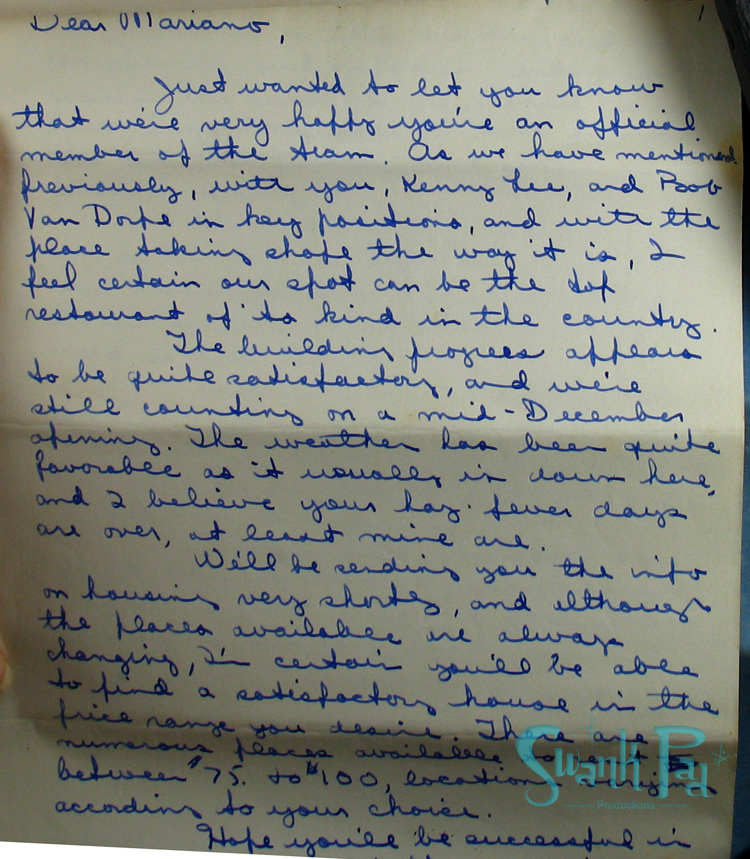 Dear Mariano,
Just wanted to let you know
that we're very happy you're an official
member of the team. As we have mentioned
previously, with you, Kenny Lee, and Bob
Van Dorpe in key positions, and with the
place taking shape the way it is, I
feel certain our spot can be the top
restaurant of its kind in the country.
The building progress appears
to be quite satisfactory, and we're
still counting on a mid-December
opening. The weather has been quite
favorable as it usually is down here,
and I believe your hay fever days
are over, at least mine are.
We'll be sending you the info
on housing very shortly, and although
the places available are always
changing, I'm certain you'll be able
to find a satisfactory house in the
price range you desire. There are
numerous places available to rent
between $75. to $100, locations varying
according to your choice.
Hope you'll be successful in
Swank Pad
Productions